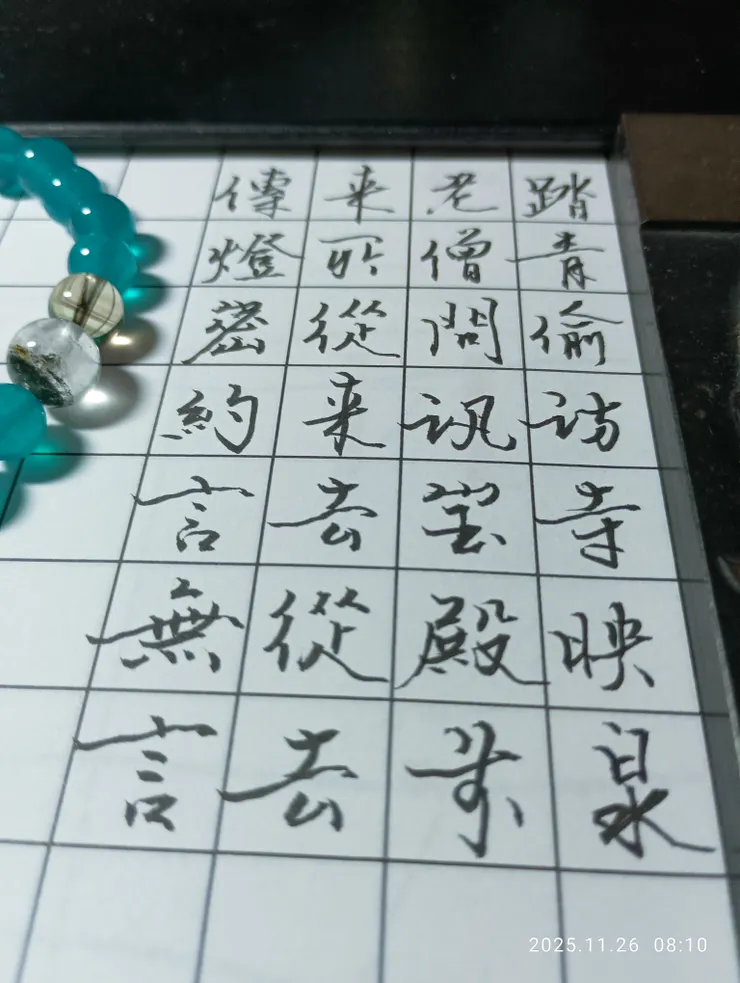 踏青偷訪寺映泉
老僧問訊堂殿前
来所從来去從去
傳燈密約言無言
2025.11.26 08:10